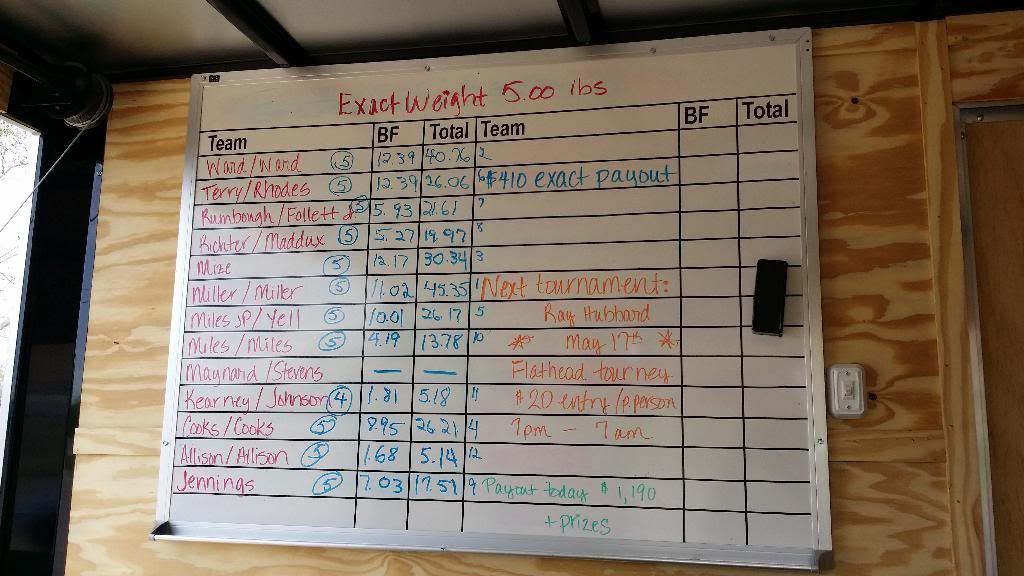 Exact Weight 5.00 lbs
Team BF Total Team BF Total
Ward/Ward 5 12.39 40.76 2
Terry/Rhodes 5 12.39 26.06 6 $410 exact payout
Rumbough/Follett 5 5.93 21.61 7
Richter/Maddux 5 5.27 19.97 8
Mize 5 12.17 30.34 3
Miller/Miller 5 11.02 45.35 1 Next tournament:
Miles JP/Yell 5 10.01 26.17 5 Ray Hubbard
Miles/Miles 5 4.19 13.78 10 * May 17th *
Maynard/Stevens — — Flathead tourney
Kearney/Johnson 4 1.81 5.18 11 $20 entry/p.person
Cooks/Cooks 5 8.95 26.21 4 7pm - 7am
Allison/Allison 5 1.68 5.14 12
Jennings 5 7.03 17.59 9 Payout today $1,190
+ prizes